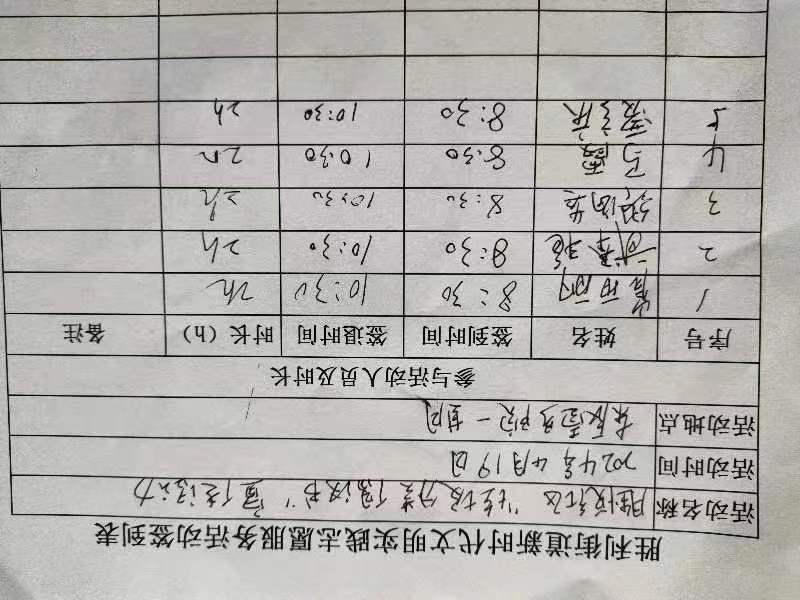 胜利街道新时代文明实践志愿服务活动签到表
活动名称 胜悦社区"垃圾分类 倡议书"宣传活动
活动时间 2024年4月19日
活动地点 东辰壹号院一期
参与活动人员及时长
序号 姓名 签到时间 签退时间 时长(h) 备注
1 8:30 10:30 2h
2 8:30 10:30 2h
3 8:30 10:30 2h
4 马霞 8:30 10:30 2h
5 8:30 10:30 2h